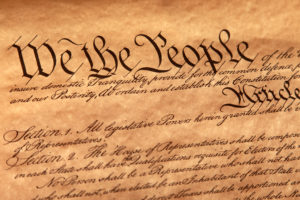 We the People of the
insure domestic Tranquility, provide for the common defence,
and our Posterity, do ordain and establish this Constitution for
Article
Section. 1. All legislative Powers herein granted shall be
of Representatives.
Section. 2. The House of Representatives shall be compo
in each State shall have Qualifications requisite for Electors of the
No Person shall be a Representative who shall not ha
and who shall not, when elected, be an Inhabitant of that State